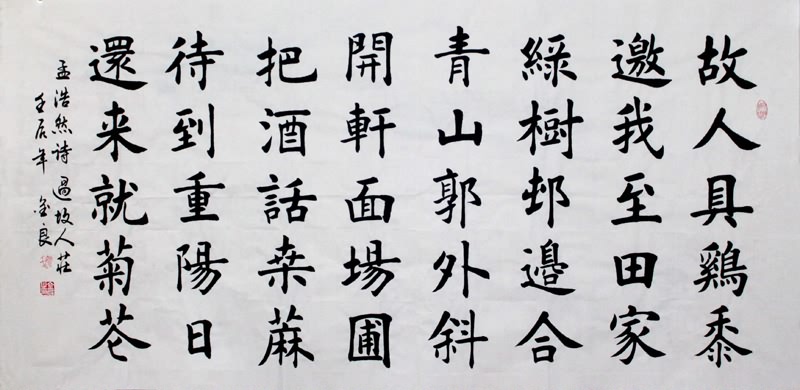 故人具鷄黍
邀我至田家
綠樹邨邉合
青山郭外斜
開軒面場圃
把酒話桒蔴
待到重陽日
還来就菊芲
孟浩然詩過故人莊
壬辰年 金良